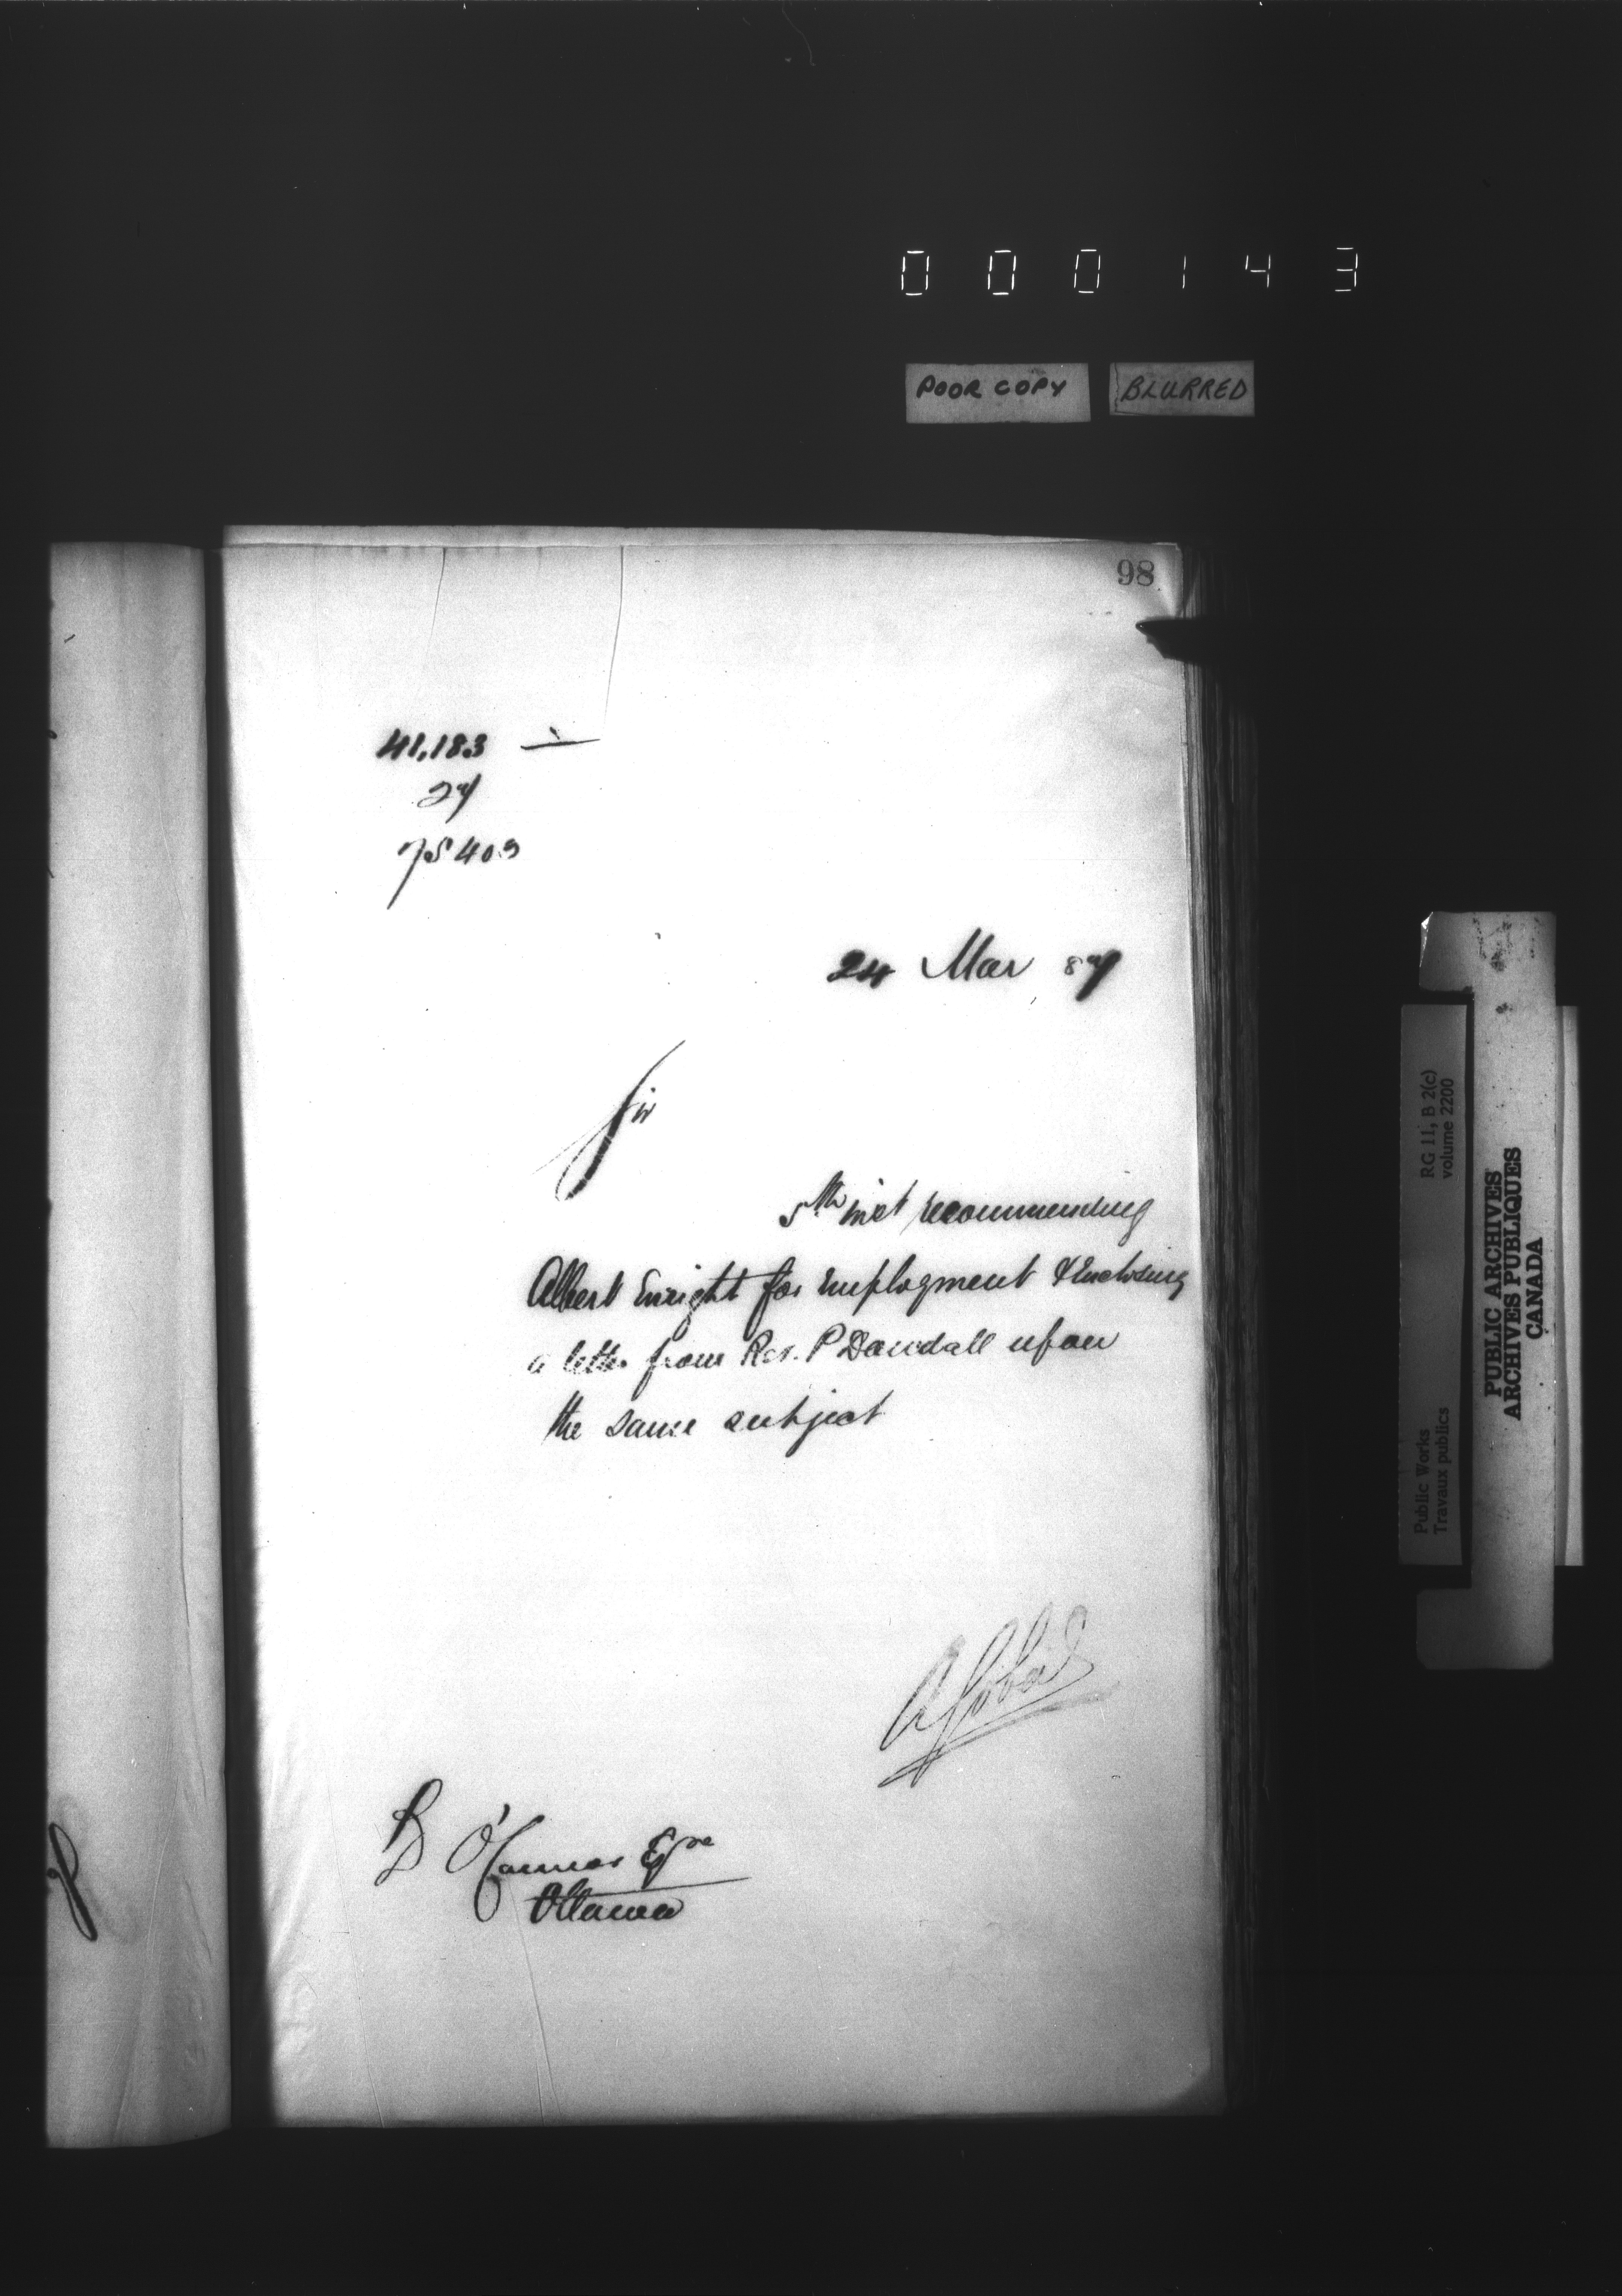 000143
POOR COPY BLURRED
98
41,183
75403
24 Mar 87
Sir
5th inst recommending
Albert Enright for employment & Enclosing
a letter from Rev. P Dowdall upon
the same subject
B O'Connor Eqre
Ottawa
RG 11, B 2(c)
volume 2200
Public Works
Travaux publics
PUBLIC ARCHIVES
ARCHIVES PUBLIQUES
CANADA